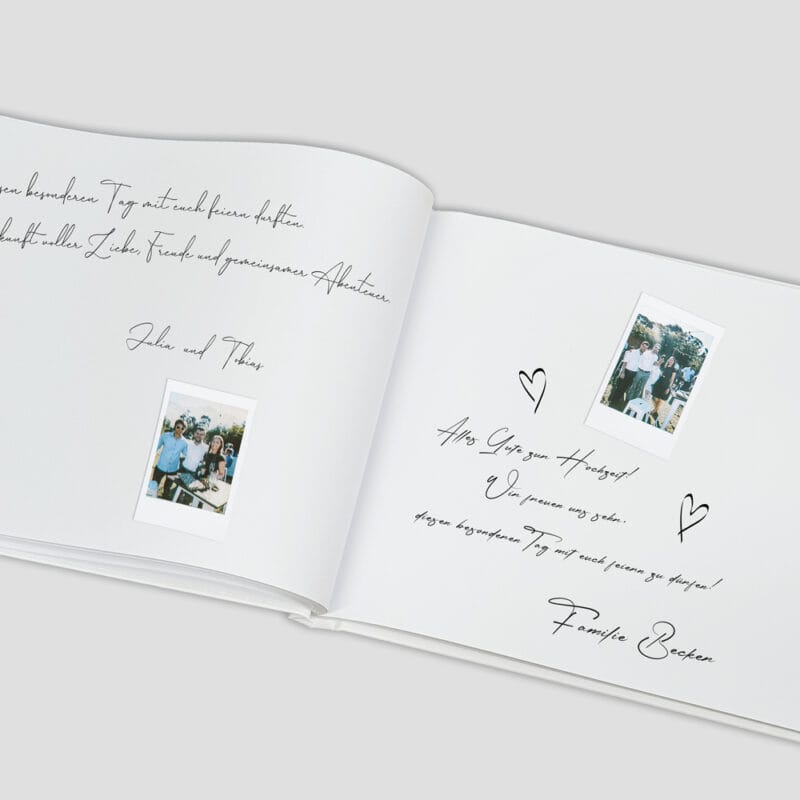 besonderen Tag mit euch feiern durften.
voller Liebe, Freude und gemeinsamer Abenteuer.
Julia und Tobias
Alles Gute zum Hochzeit!
Wir freuen uns sehr,
diesen besonderen Tag mit euch feiern zu dürfen!
Familie Becker